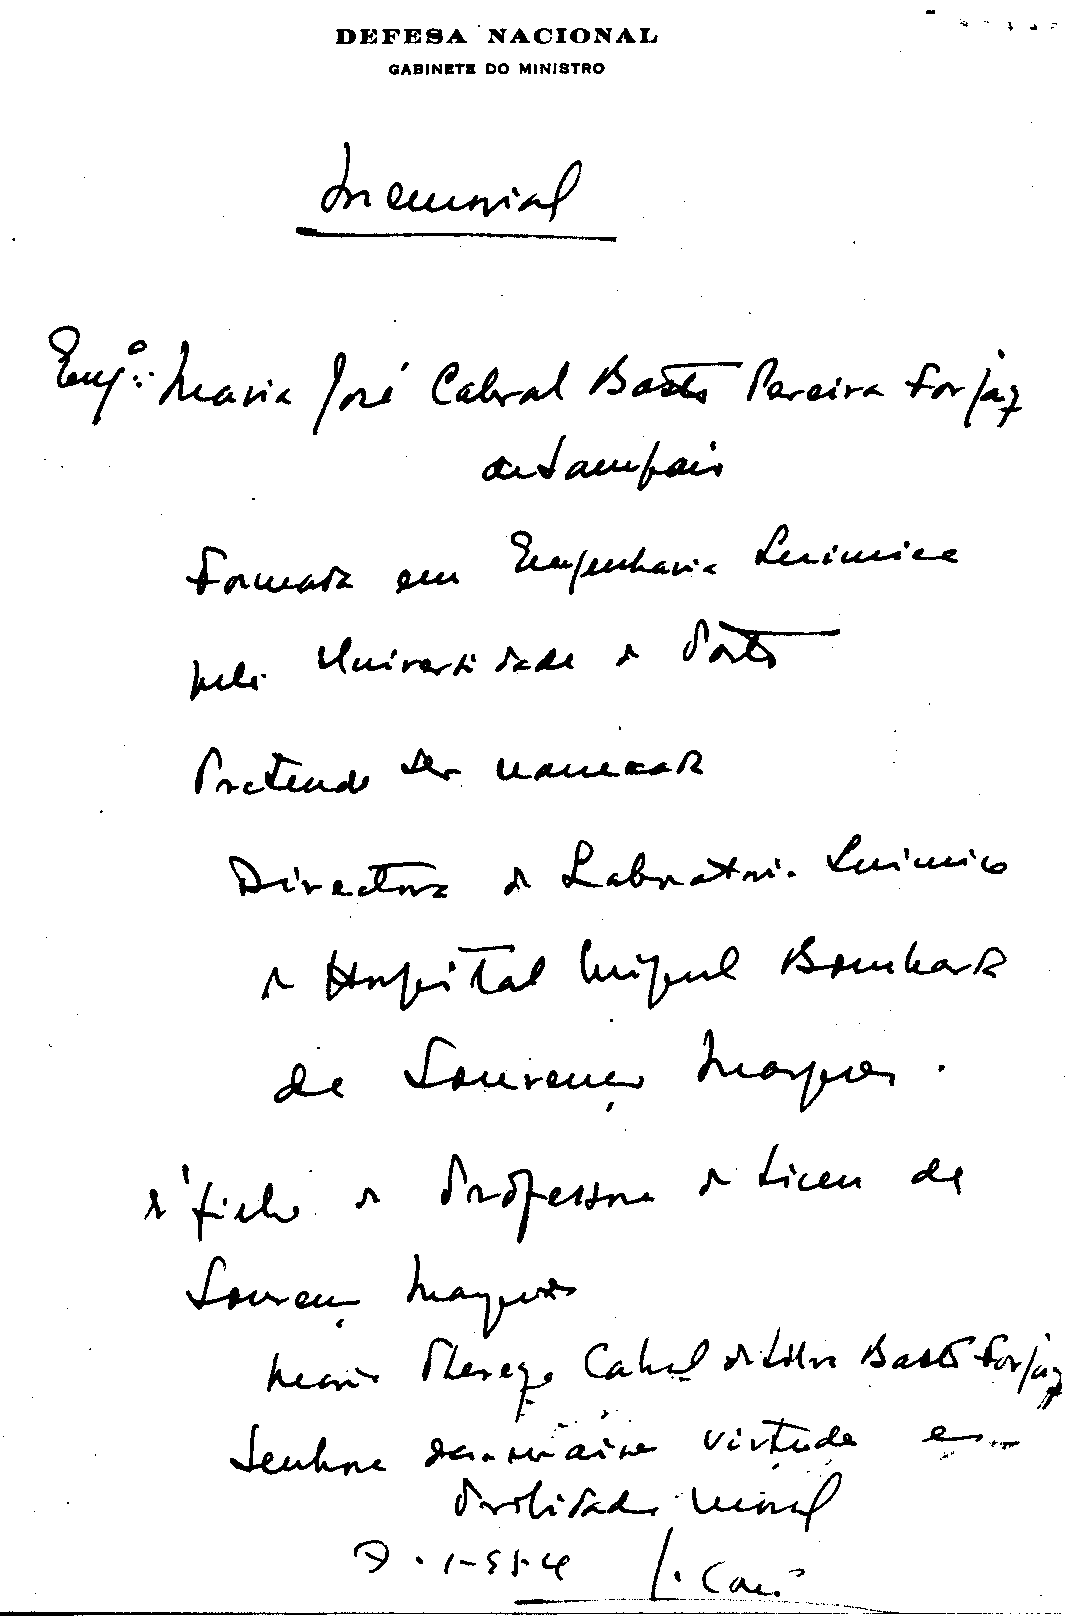 DEFESA NACIONAL
GABINETE DO MINISTRO
Memorial
Engº: Maria José Cabral Basto Pereira Forjaz
de Sampaio
Formada em Engenharia Quimica
pela Universidade do Porto
Pretende ser nomeada
Directora do Laboratorio Quimico
do Hospital Miguel Bombarda
de Lourenço Marques.
É filha da Professora do Liceu de
Lourenço Marques
Maria Thereza Cabral da Silva Basto Forjaz
Senhora das maiores virtudes e
probidade moral
7-1-954